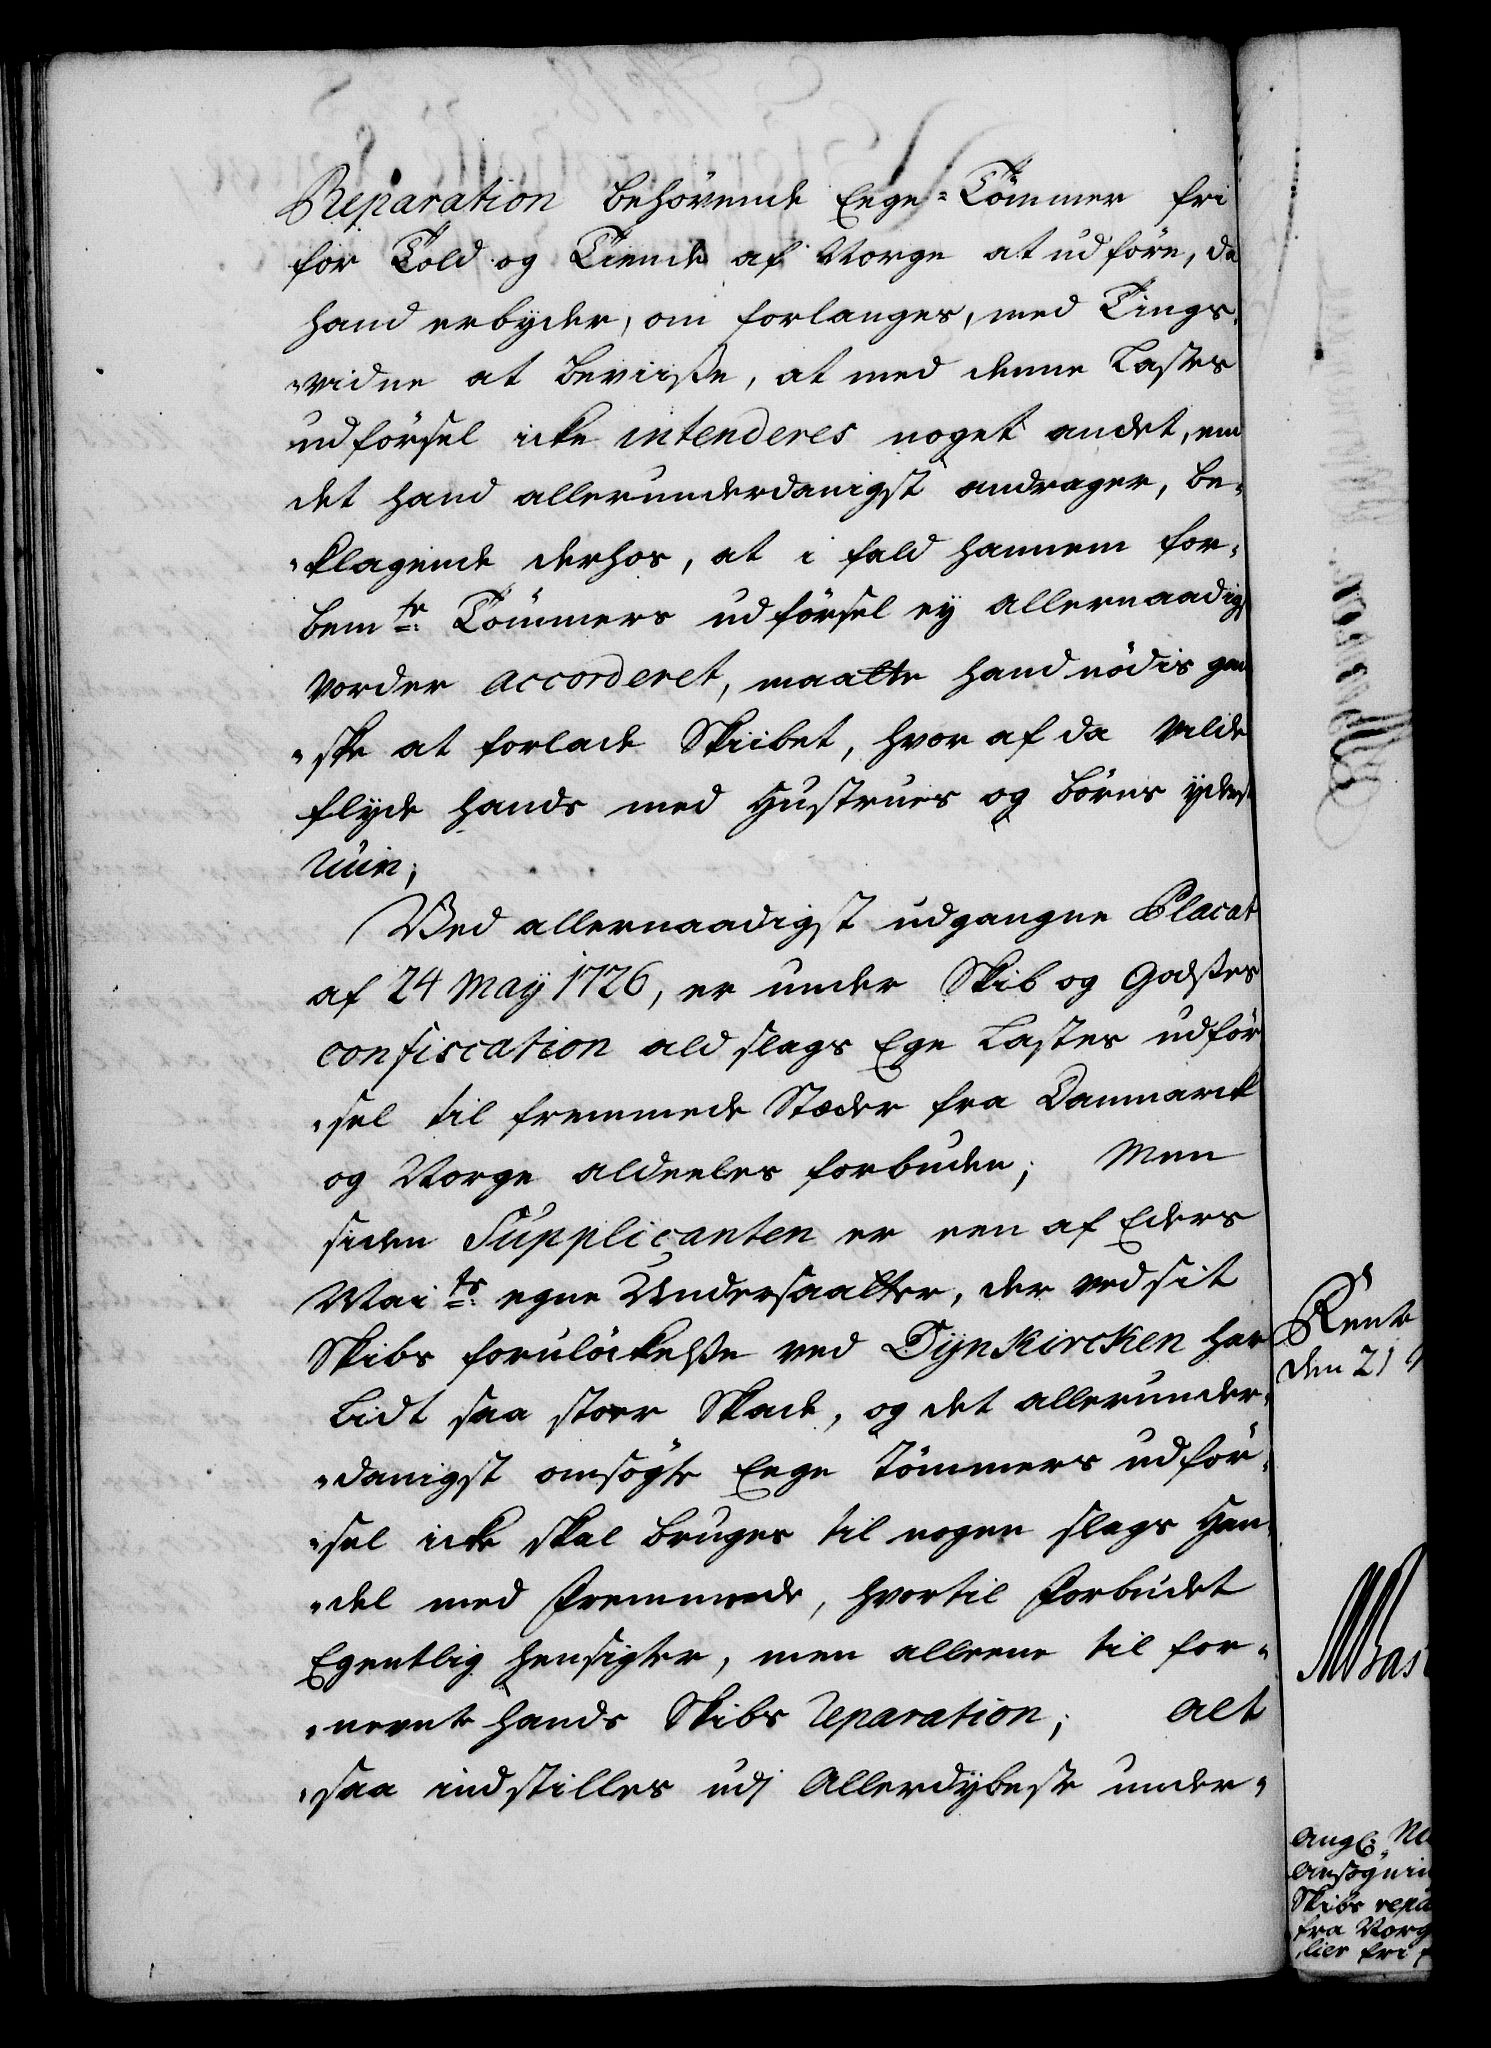 Reparation behøvende Eege-Tømmer fri
for Told og Tiende af Norge at udføre, da
hand erbyder, om forlanges, med Tings-
-vidne at beviiße, at med denne Lastes
udførsel icke intenderes noget andet, en
det hand allerunderdanigst andrager, be-
-klagende derhos, at i fald hannem for-
bemte Tømmers udførsel ey allernaadigst
vorder accorderet, maatte hand nødis gan-
-ske at forlade Skibet, hvor af da vilde
flyde hands med Hustrues og børns yderste
Ruin;
Ved allernaadigst udgangne Placat
af 24 May 1726, er under Skib og Godses
confiscation ald slags Ege Lastes udför
-sel til fremmede Stæder fra Danmarck
og Norge aldeeles forbuden; Men
siden Supplicanten er een af Eders
Maits egne Undersaatter, der ved sit
Skibs forulückelße ved Dynkircken har
Lidt saa stoer Skade, og det allerunder-
-danigst ansøgte Eege Tømmers udför-
-sel icke skal bruges til nogen slags Han-
-del med Fremmede, hvortil Forbudet
Egentlig hensigter, men alleene til for-
-nevnte hands Skibs Reparation; Alt
-saa indstilles udj Allerdybeste under-
Rente
den 21
Angl: 
Ansøgnin
Skibs repa
fra Norg
fri